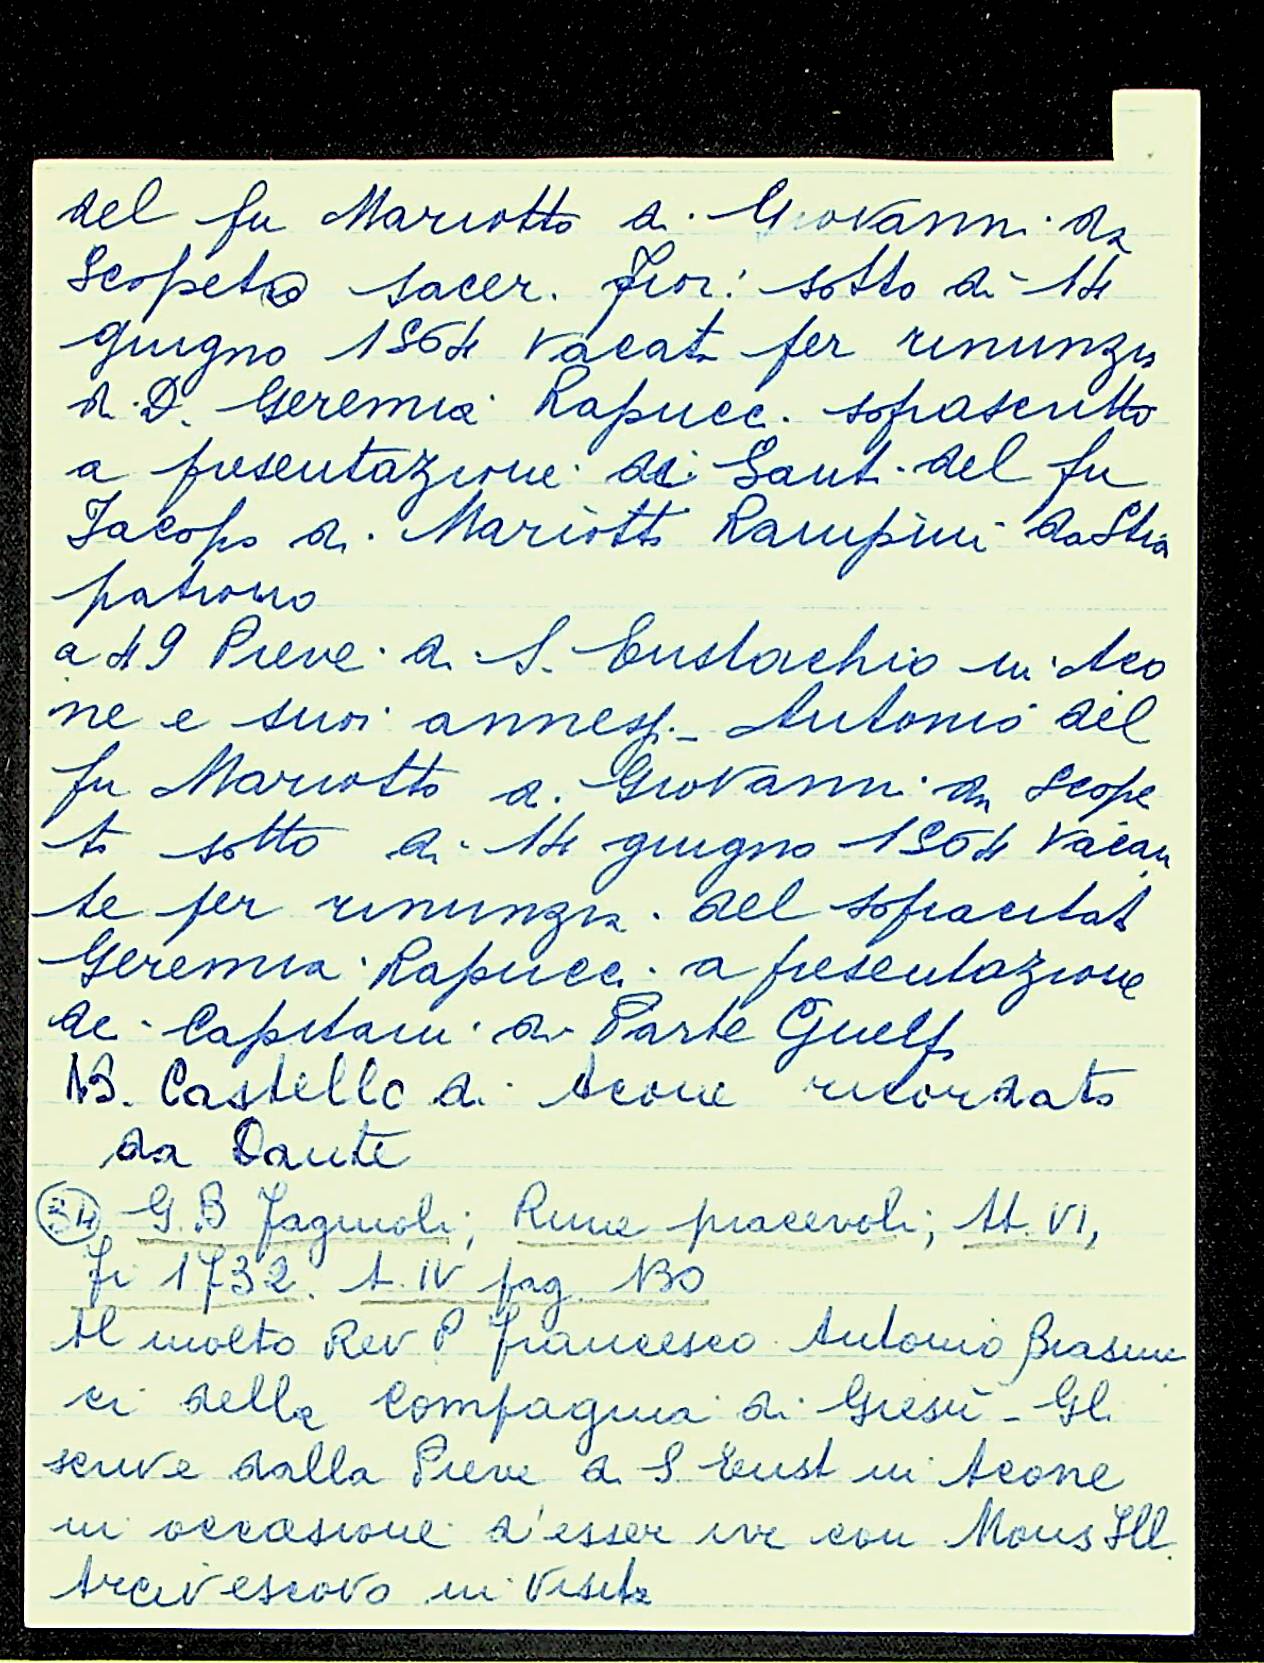 del fu Mariotto di Giovanni da
Scopeto sacer. fior: sotto dì 14
giugno 1564 vacat per rinunzia
di D. Geremia Rapucci soprascritto
a presentazione di Santi del fu
Jacopo di Mariotto Rampini da Stia
patrono
a 49 Pieve di S. Eustachio in Aco
ne e suoi annessi - Antonio del
fu Mariotto di Giovanni da Scope
to sotto dì 14 giugno 1564 vacan
te per rinunzia del sopracitat
Geremia Rapucci a presentazione
dei Capitani di Parte Guelf
NB. Castello di Acone ricordato
da Dante
34 G. B Fagiuoli; Rime piacevoli; tt. VI,
Fi 1732. t. IV pag.
Al molto Rev P Francesco Antonio
ci della Compagnia di Giesù - Gli
scrive dalla Pieve di S Eust in Acone
in occasione d'esser ivi con Mons Ill.
Arcivescovo in visita